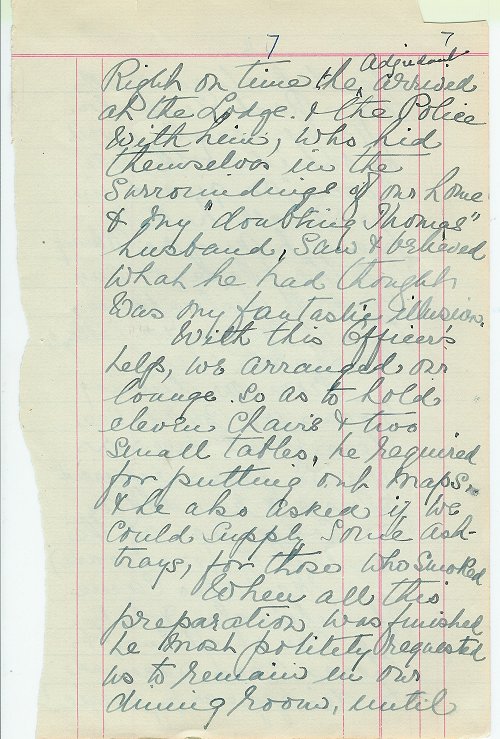 7
7
Adjudant
Right on time the, arrived
at the Lodge. & the Police
with him, who hid
themselves in the
Surroundings of our home
& my "doubting Thomas"
husband, saw & believed
what he had thought
was my fantastic illusion.
With this Officer's
help, we arranged our
lounge. so as to hold
eleven chairs & two
small tables, he required
for putting out maps,
& he also asked if we
could supply some ash-
trays, for those who smoked
When all this
preparation was finished
he most politely requested
us to remain in our
dining room, until